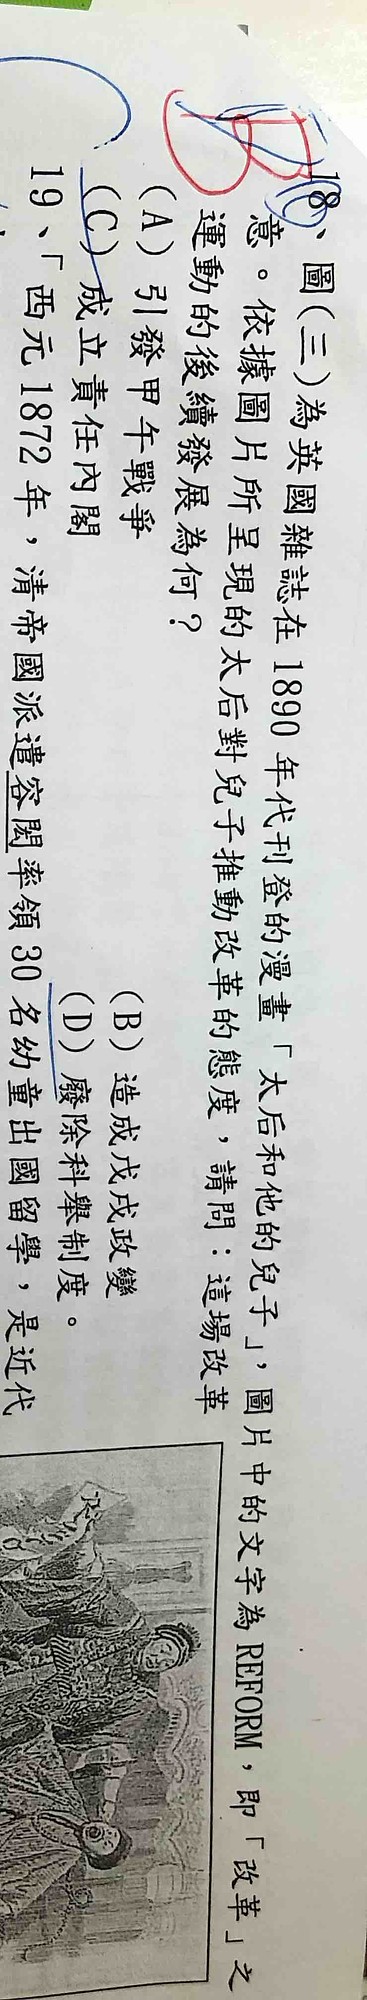 B
18、圖(三)為英國雜誌在1890年代刊登的漫畫「太后和他的兒子」，圖片中的文字為REFORM，即「改革」之
意。依據圖片所呈現的太后對兒子推動改革的態度，請問：這場改革
運動的後續發展為何？
(A) 引發甲午戰爭 (B) 造成戊戌政變
(C) 成立責任內閣 (D) 廢除科舉制度。
19、「西元1872年，清帝國派遣容閎率領30名幼童出國留學，是近代